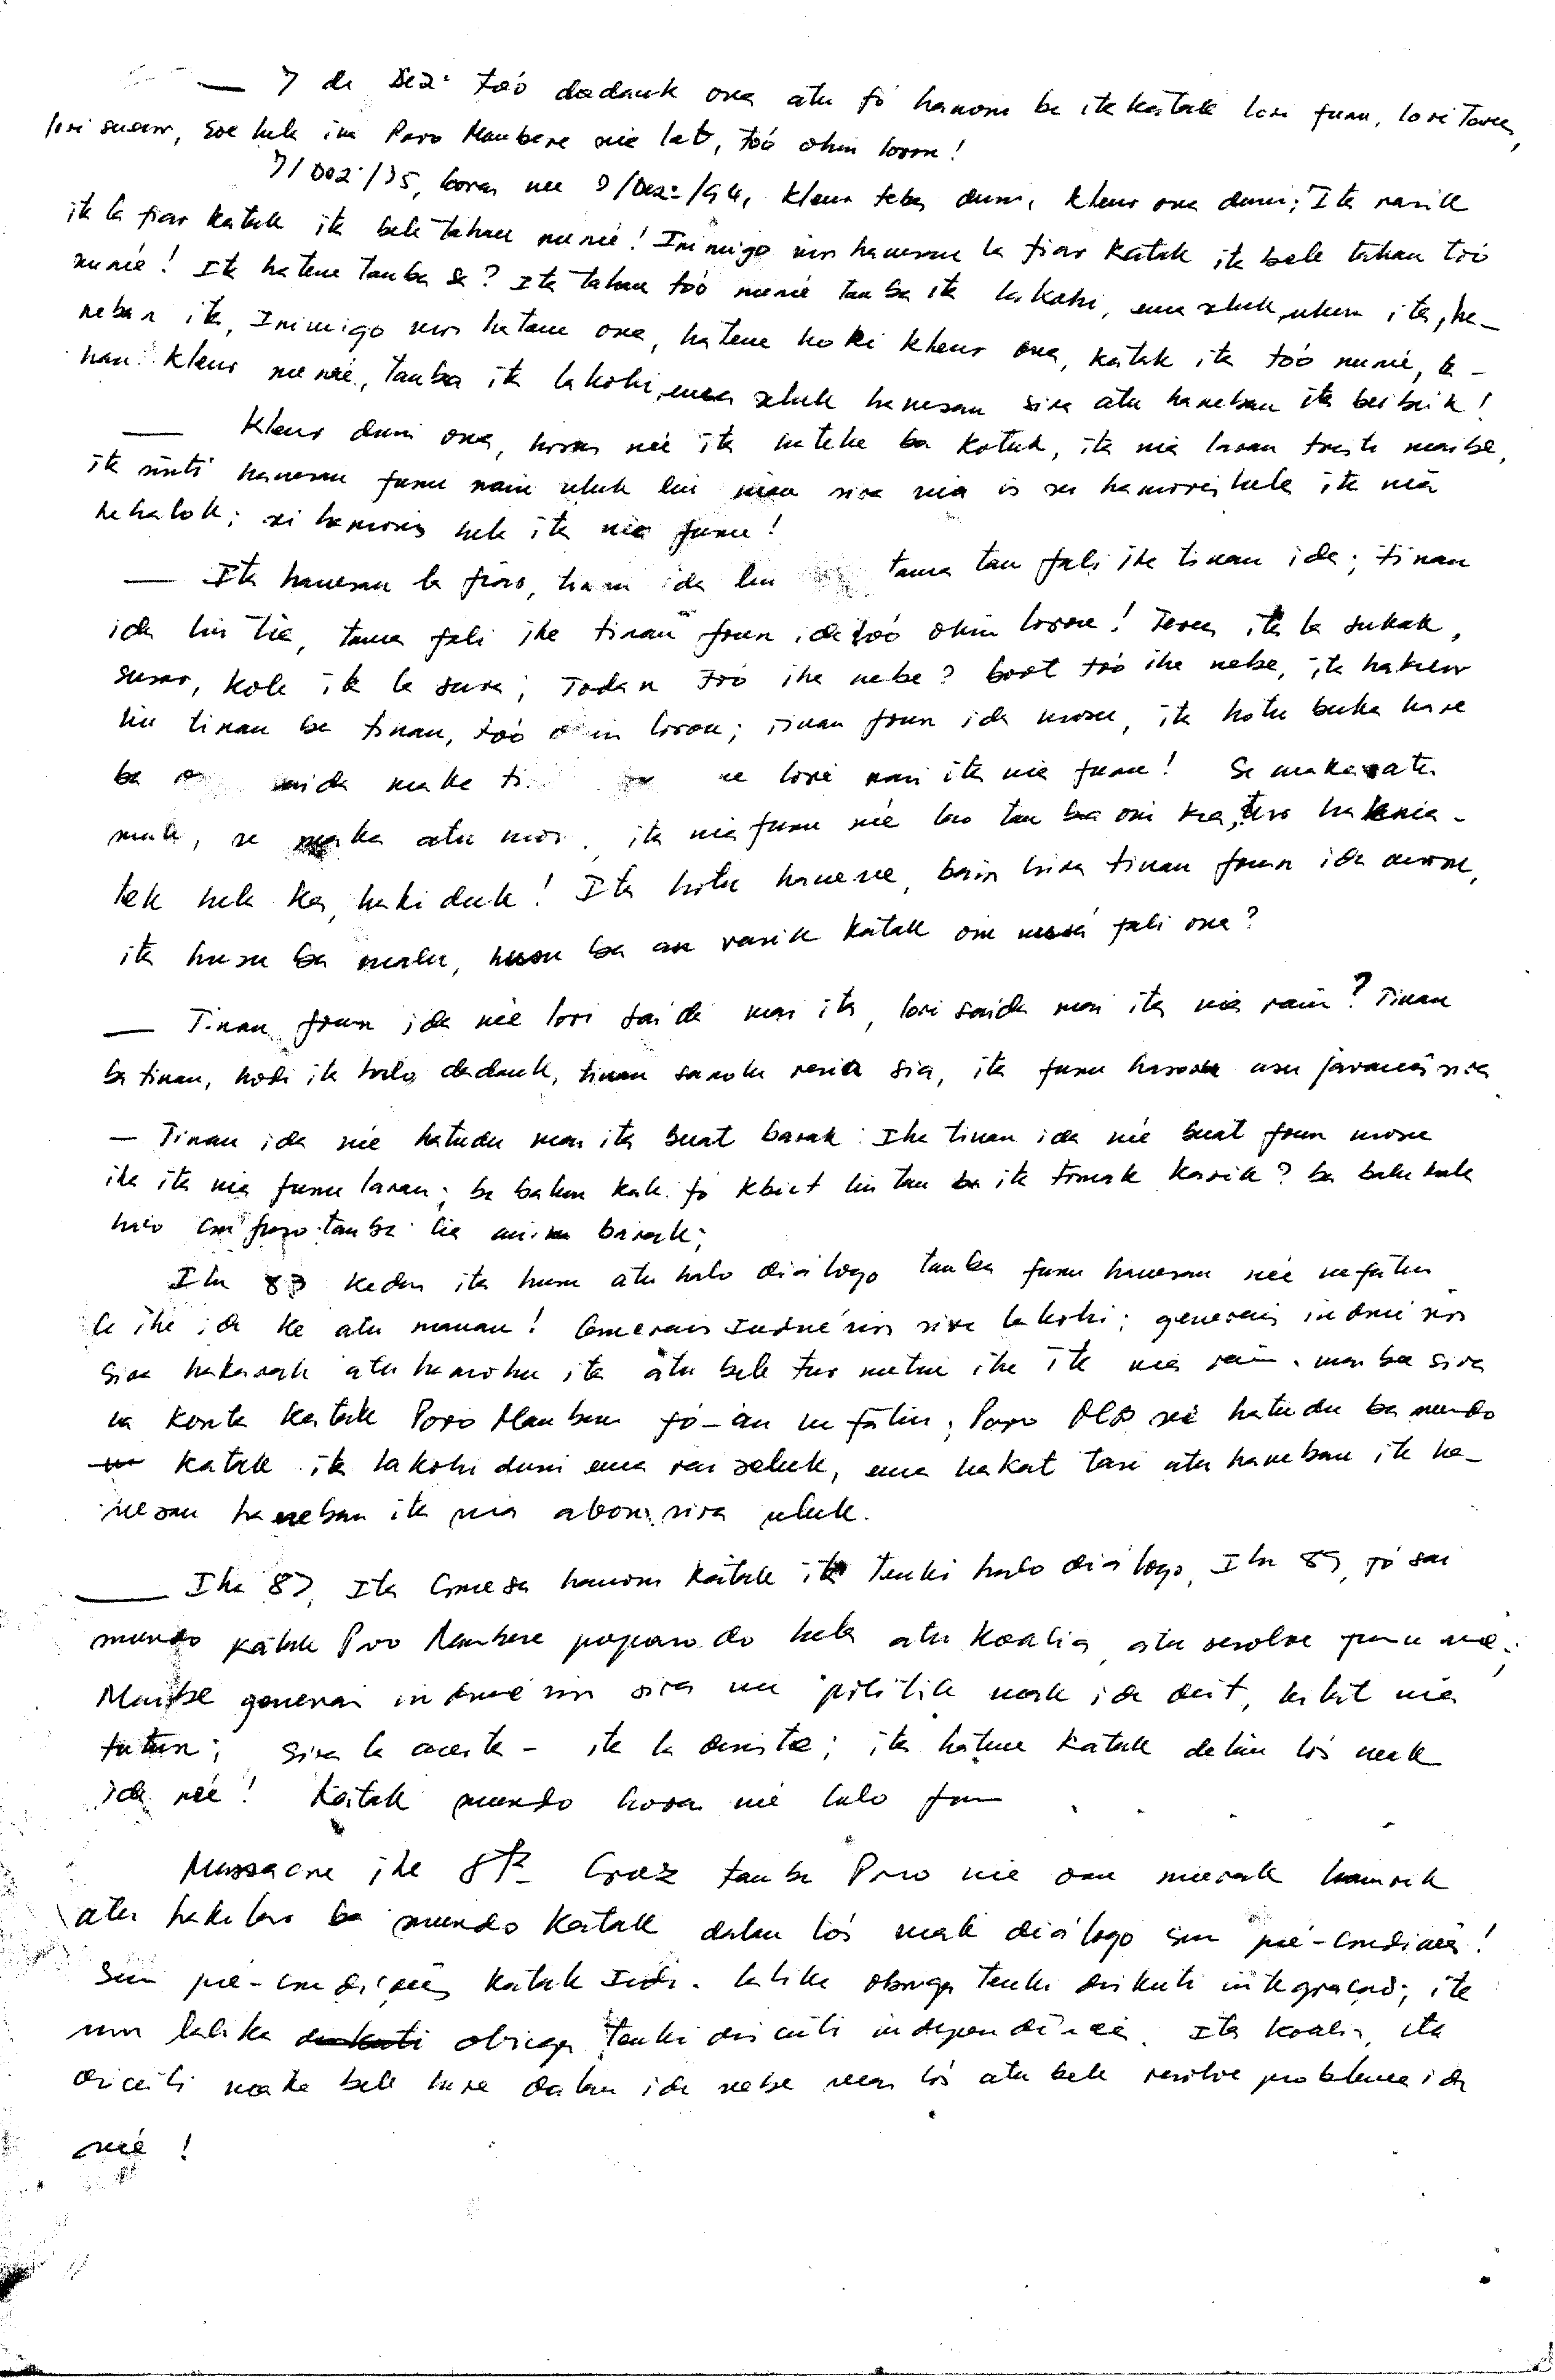 — 7 de Dez: too dadauk ona atu fó hanoin ba ita katak lori funu, lori terus,
lori susar, soe hela ina Povo Maubere nia lat, too ohin loron!
7/Dez:/75, horas nee 7/Dez:/94, kleur tebes duni, kleur ona duni; Ita rasik
ita la fiar katak ita bele tahan nunie! Inimigo mos hanesan la fiar katak ita bele tahan too
nunie! Ita hatene tanba sa? Ita tahan too nunie tanba ita lakohi, ema seluk ukun ita, ha-
neban ita, Inimigo mos hatene ona, hatene hori kleur ona, katak ita too nunie, ta-
han kleur nunie, tanba ita lakohi, ema seluk hanesan sira atu haneban ita beibeik!
— Kleur duni ona, horas nee ita hateke ba kotuk, ita nia laran triste maibe,
ita sinti hanesan funu nain uluk liu nian sira nia is sei hamoris hela ita nia
hahalok; sei hamoris hela ita nia funu!
— Ita hanesan la fiar, tinan ida liu tama tan fali iha tinan ida; tinan
ida liu tia, tama fali iha tinan foun ida too ohin loron! Terus ita la sukat,
susar, kole ita la sura; Todan too iha nebe? boot too iha nebe, ita hakur
liu tinan ba tinan, too ohin loron; tinan foun ida mosu, ita hotu buka hare
ba saida maka ti lori mai ita nia funu! Se maka atu
mate, se maka atu moris, ita nia funu nee lao tan ba oin ka, tuo hakmia-
tek hela ka, hakiduk! Ita hotu hanesan, bain hira tinan foun ida mosu,
ita husu ba malu, husu ba an rasik katak oin nusá fali ona?
— Tinan foun ida nee lori saida mai ita, lori saida mai ita nia rain? Tinan
ba tinan, hodi ita halo dadauk, tinan sanolu resin sia, ita funu hasoru asu javanês sira
— Tinan ida nee hatudu mai ita buat barak: Iha tinan ida nee buat foun mosu
iha ita nia funu laran; ba balun kala fó kbiit liu tan ba ita tomak karik? ba balu kala
halo confuso tanba lia barak;
Iha 83 kedas ita husu atu halo diálogo tanba funu hanesan nee nafatin
la iha ida ke atu manan! Generais Indonésios sira lakohi; generais indonésios
sira hakarak atu hamohu ita atu bele tur metin iha ita nia rain. mai be sira
la konta katak Povo Maubere fó-an nafatin; Povo nee hatudu ba mundo
katak ita lakohi duni ema rai seluk, ema hakat tasi atu haneban ita ha-
nesan haneban ita nia abon sira uluk.
— Iha 87, Ita comesa hanoin katak ita tenki halo diálogo, Iha 89, fó sai
mundo katak Povo Maubere preparado hela atu koalia, atu resolve funu nee;
Maibe generais indonésios sira nia política mak ida deit, kbiit nia
tutun; sira la aceita - ita la desiste; ita hatene katak dalan los mak
ida nee! Katak mundo horas nee lalo
Massacre iha Sta Cruz tanba Povo nia oan murak hamrik
atu haklaken ba mundo katak dalan los mak diálogo sin pré-condições!
Sein pré-condições katak Indo. lalika obriga tenki diskuti integração; ita
mos lalika obriga tenki discuti independência. Ita koalia, ita
discuti maka bele hare dalan ida nebe mak los atu bele resolve problema ida
nee!